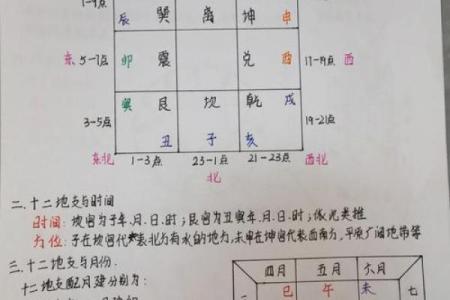 1-9点
辰 巽 离 坤 申
东 5-7点 卯 震 兑 酉 17-19点 西
3-5点 寅 艮 坎 乾 戌 19-21点
丑 子 亥
东北 1-3点 23-1点 21-23点 西北
北
二.十二地支与时间
时间:坎宫为子年.月.日.时;艮宫为丑寅年.月.日.时;依此类推
方位:子在坎宫代表北方有水的地方,未申在坤宫代表西南方,平原广阔地带等
三.十二地支与月份.
十二地支配月建分别为:
四月 五月 六月
巳 午 未 七